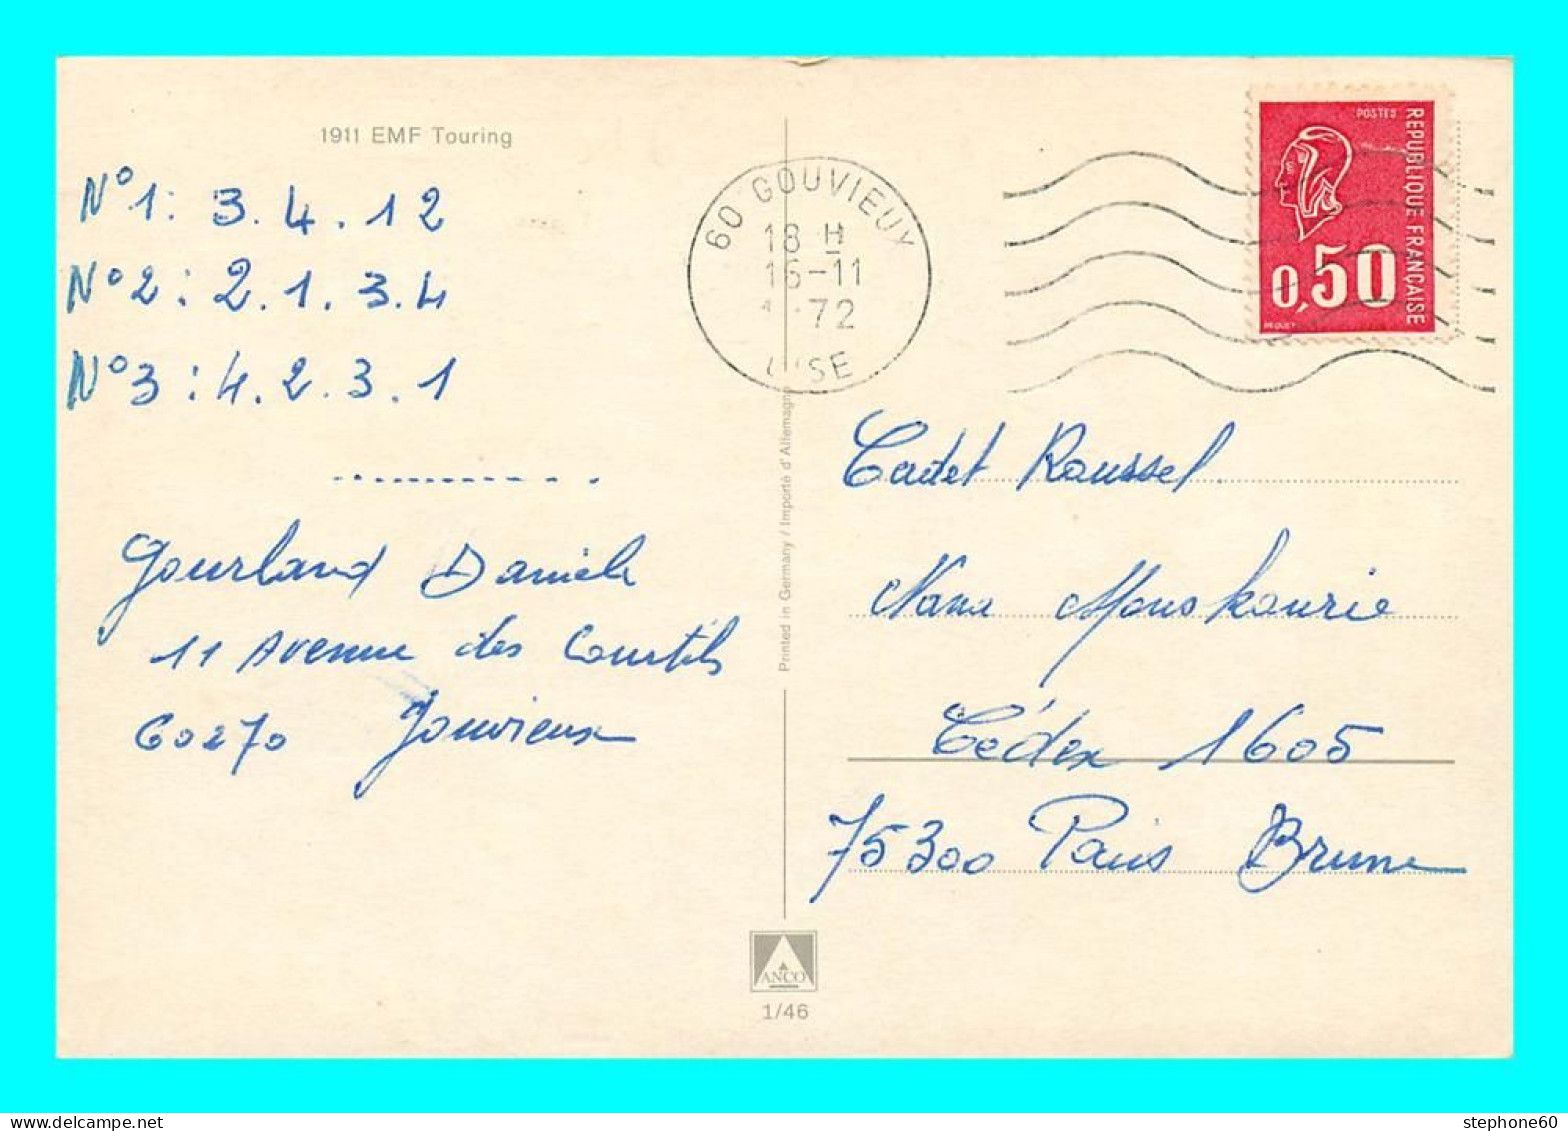 1911 EMF Touring
N° 1 : 3. 4. 12
N° 2 : 2. 1. 3. 4
N° 3 : 4. 2. 3. 1
Gourland Danièle
11 Avenue des Courtils
60270 Gouvieux
Printed in Germany / Importé d'Allemagne
ANCO
1/46
60 GOUVIEUX
18 H
16-11
72
OISE
POSTES
REPUBLIQUE FRANÇAISE
0,50
BEQUET
Cadet Roussel
Nana Mouskourie
Cédex 1605
75300 Paris Brune
stephone60